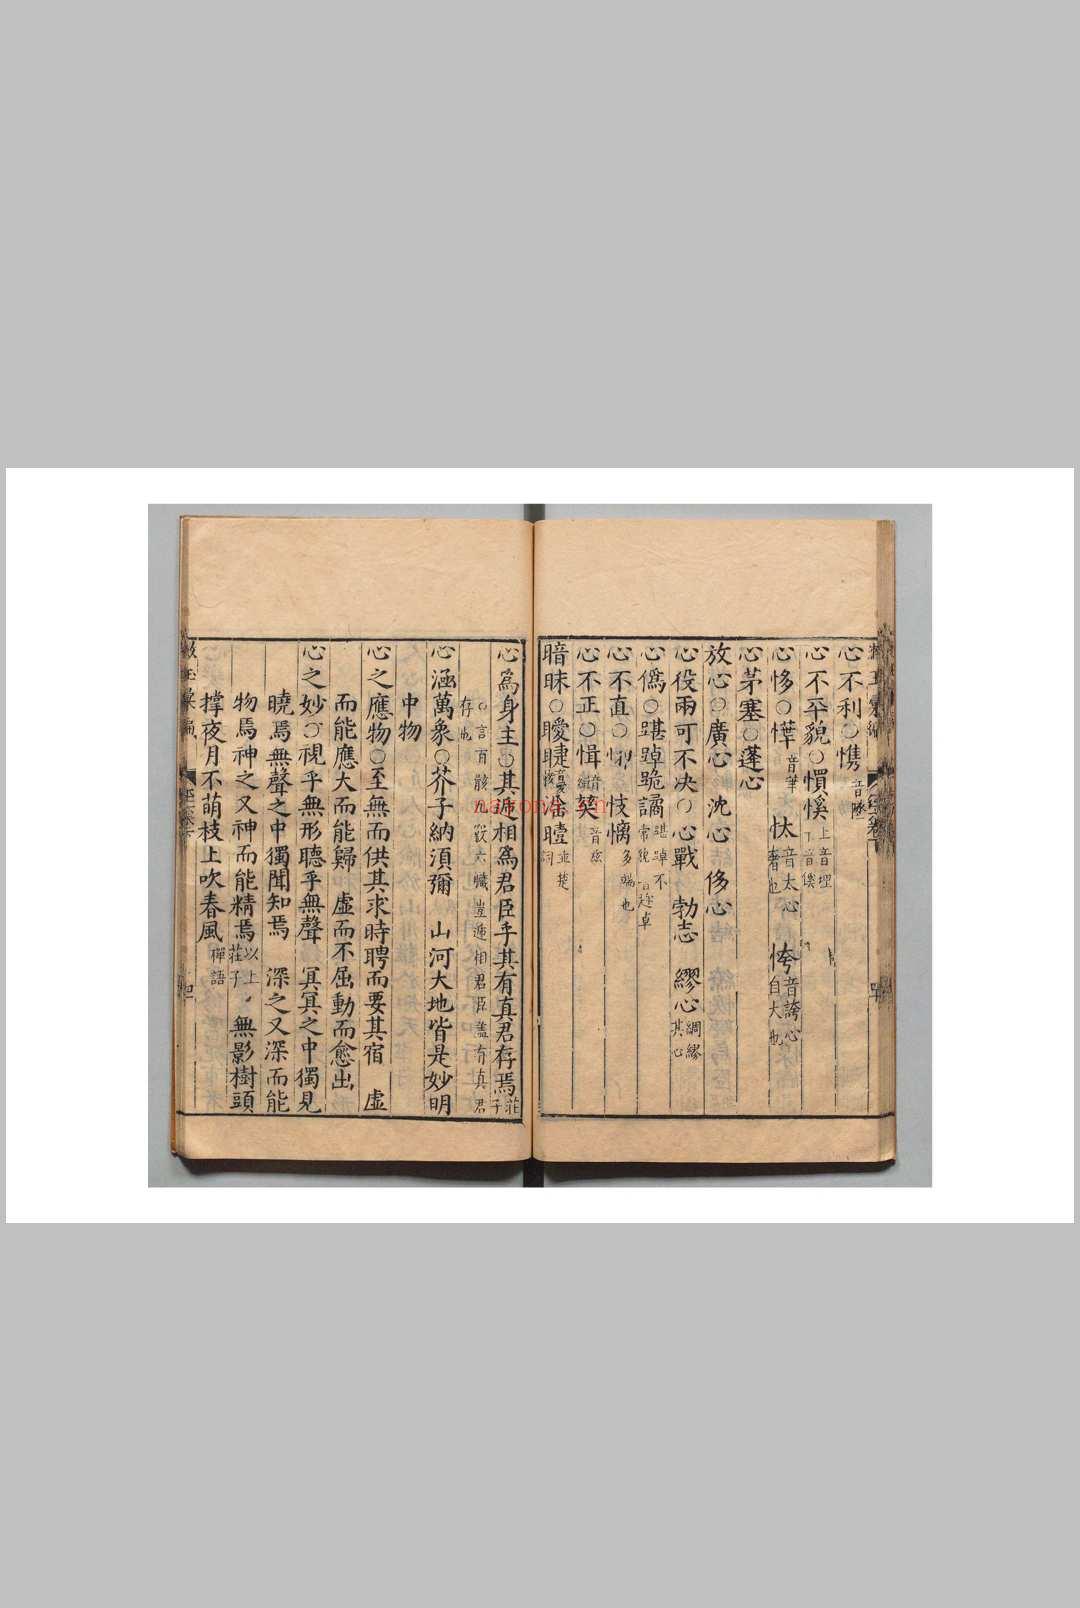 心不利○憔音
心不平貌○慣慀上音
心侈○㦊音華 忲音太心奢也 恗音誇心自大也
心茅塞○蓬心
放心○廣心 沈心 侈心
心役兩可不决○心戰 勃志 繆心綢繆其心
心僞○踸踔詭譎踸踔不常貌
心不直○ 忮㥓多端也
心不正○
暗昧○曖
心爲身主○其遞相爲君臣乎其有真君存焉莊子
○言百骸九竅六臟豈遞相君臣蓋有真君存也
心涵萬象○芥子納須彌 山河大地皆是妙明
中物
心之應物○至無而供其求時聘而要其宿 虛
而能應大而能歸 虛而不屈動而愈出
心之妙○視乎無形聽乎無聲 冥冥之中獨見
曉焉無聲之中獨聞知焉 深之又深而能
物焉神之又神而能精焉以上莊子 無影樹頭
撑夜月不萌枝上吹春風禪語
naxona.cn